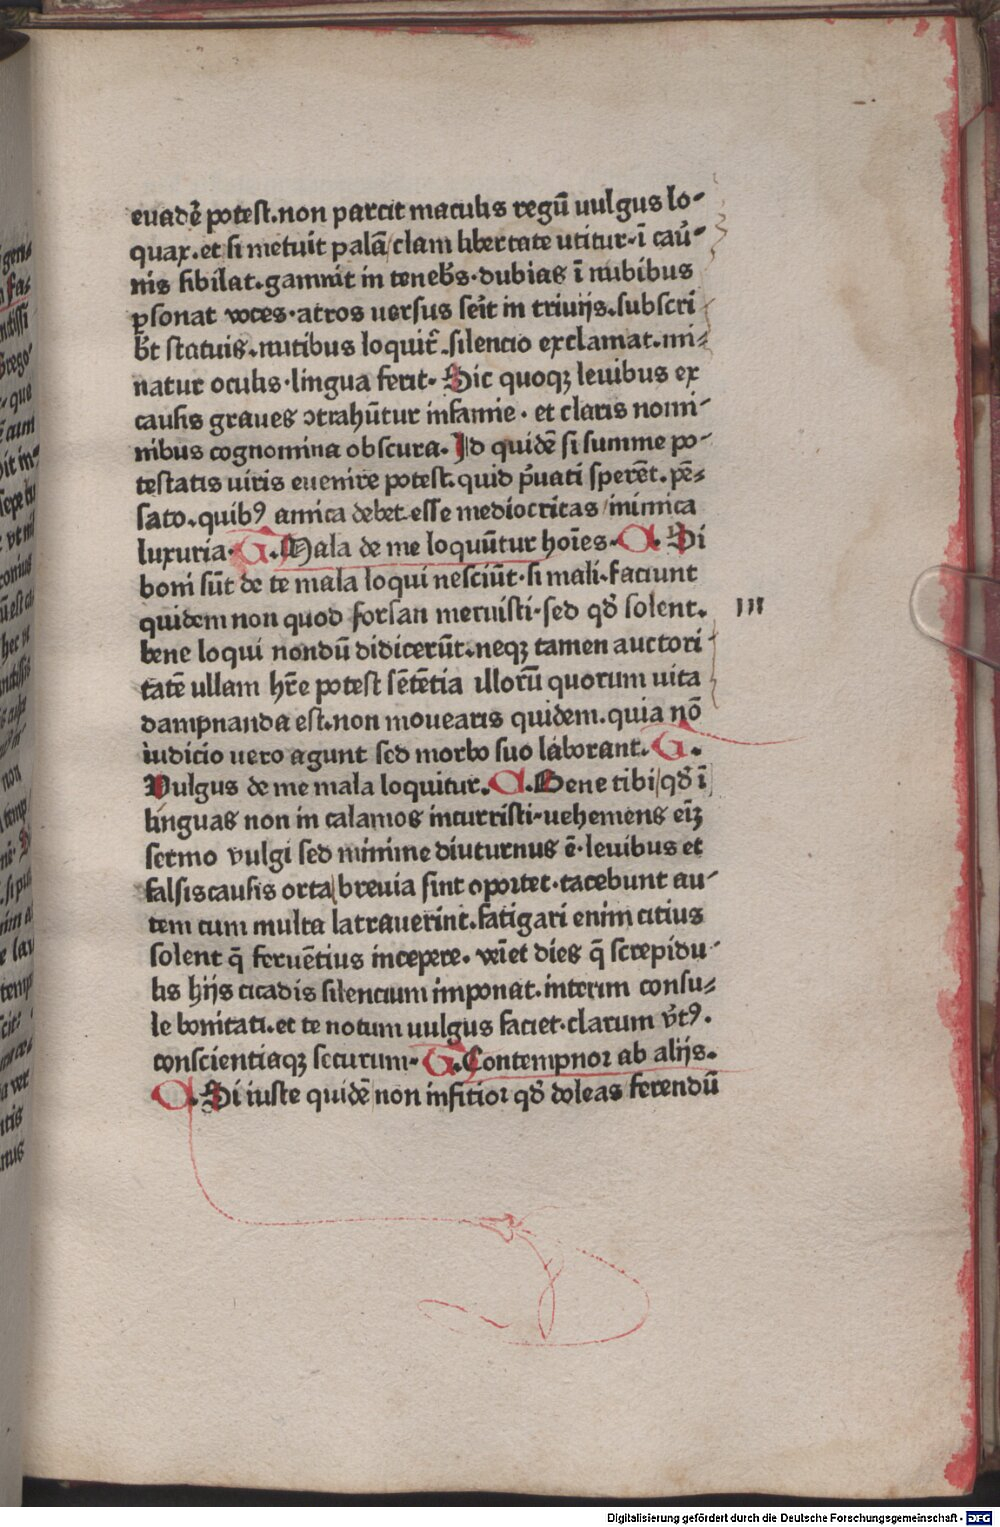 euadē potest.non parcit maculis regū uulgus lo-
quax.et si metuit palā/clam libertate utitur.ī cau̓-
nis sibilat.gannit in tenebꝰs.dubias ī nubibus
ꝑsonat voces.atros uersus serit in triuijs.subscri
bꝰt statuis.nutibus loquit᷑.silencio exclamat.mi-
natur oculis.lingua ferit. Sic quoqꝫ leuibus ex
causis graues ↄtrahūtur infamie. et claris nomi-
nibus cognomina obscura. Id quidē si summe po-
testatis uiris euenire potest.quid p̓uati sperēt.pē-
sato.quibꝰ amica debet esse mediocritas/inimica
luxuria. G. Mala de me loquūtur hoīes. A. Si
boni sūt de te mala loqui nesciūt.si mali.faciunt
quidem non quod forsan meruisti.sed qđ solent.
bene loqui nondū didicerūt.neqꝫ tamen auctori
tatē ullam hr̄e potest sētētia illorū quorum uita
dampnanda est.non mouearis quidem.quia nō
iudicio uero agunt sed morbo suo laborant. G.
Vulgus de me mala loquitur. A. Bene tibi/qđ ī
linguas non in calamos incurristi.uehemens eīꝫ
sermo vulgi sed minime diuturnus ē.leuibus et
falsis causis orta/breuia sint oportet.tacebunt au-
tem cum multa latrauerint.fatigari enim citius
solent q̄ feruētius incepere. veīet dies q̄ screpidu-
lis hijs cicadis silencium imponat.interim consu-
le bonitati.et te notum uulgus faciet.clarum v̓tꝰ.
conscientiaqꝫ securum. G. Contempnor ab alijs.
A. Si iuste quidē non infitior qđ doleas ferendū
III
Digitalisierung gefördert durch die Deutsche Forschungsgemeinschaft - DFG